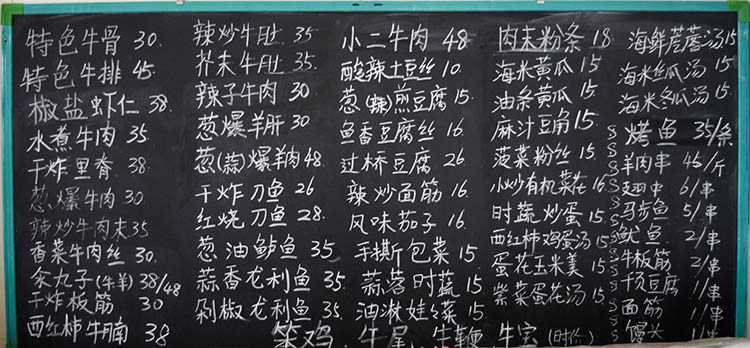 特色牛骨 30.
特色牛排 45.
椒盐虾仁 38.
水煮牛肉 35
干炸里脊 38
葱爆牛肉 30
辣炒牛肉末35
香菜牛肉丝 30.
汆丸子(牛羊) 38/48
干炸板筋 30
西红柿牛腩 38
辣炒牛肚 35
芥末牛肚 35
辣子牛肉 30
葱爆羊肝 30
葱(蒜)爆羊肉 48
干炸刀鱼 26
红烧刀鱼 28.
葱油鲈鱼 35
蒜香龙利鱼 35
剁椒龙利鱼 35
小二牛肉 48
酸辣土豆丝 10
葱(辣)煎豆腐 15.
鱼香豆腐丝 16.
过桥豆腐 26
辣炒面筋 16.
风味茄子 16
手撕包菜 15
蒜蓉时蔬 15
油淋娃娃菜 15
肉末粉条 18
海米黄瓜 15
油条黄瓜 15
麻汁豆角 15
菠菜粉丝 15
小炒有机菜花 16
时蔬炒蛋 15
西红柿鸡蛋汤 15
蛋花玉米羹 15
紫菜蛋花汤 15
海鲜蘑菇汤15
海米丝瓜汤 15
海米冬瓜汤 15
烤鱼 35/条
羊肉串 45/斤
翅中 6/串
马步鱼 5/串
鱿鱼 2/串
牛板筋 2/串
干豆腐 1/串
面筋 1/串
馒头
笨鸡 牛尾 牛鞭 牛宝 (时价)